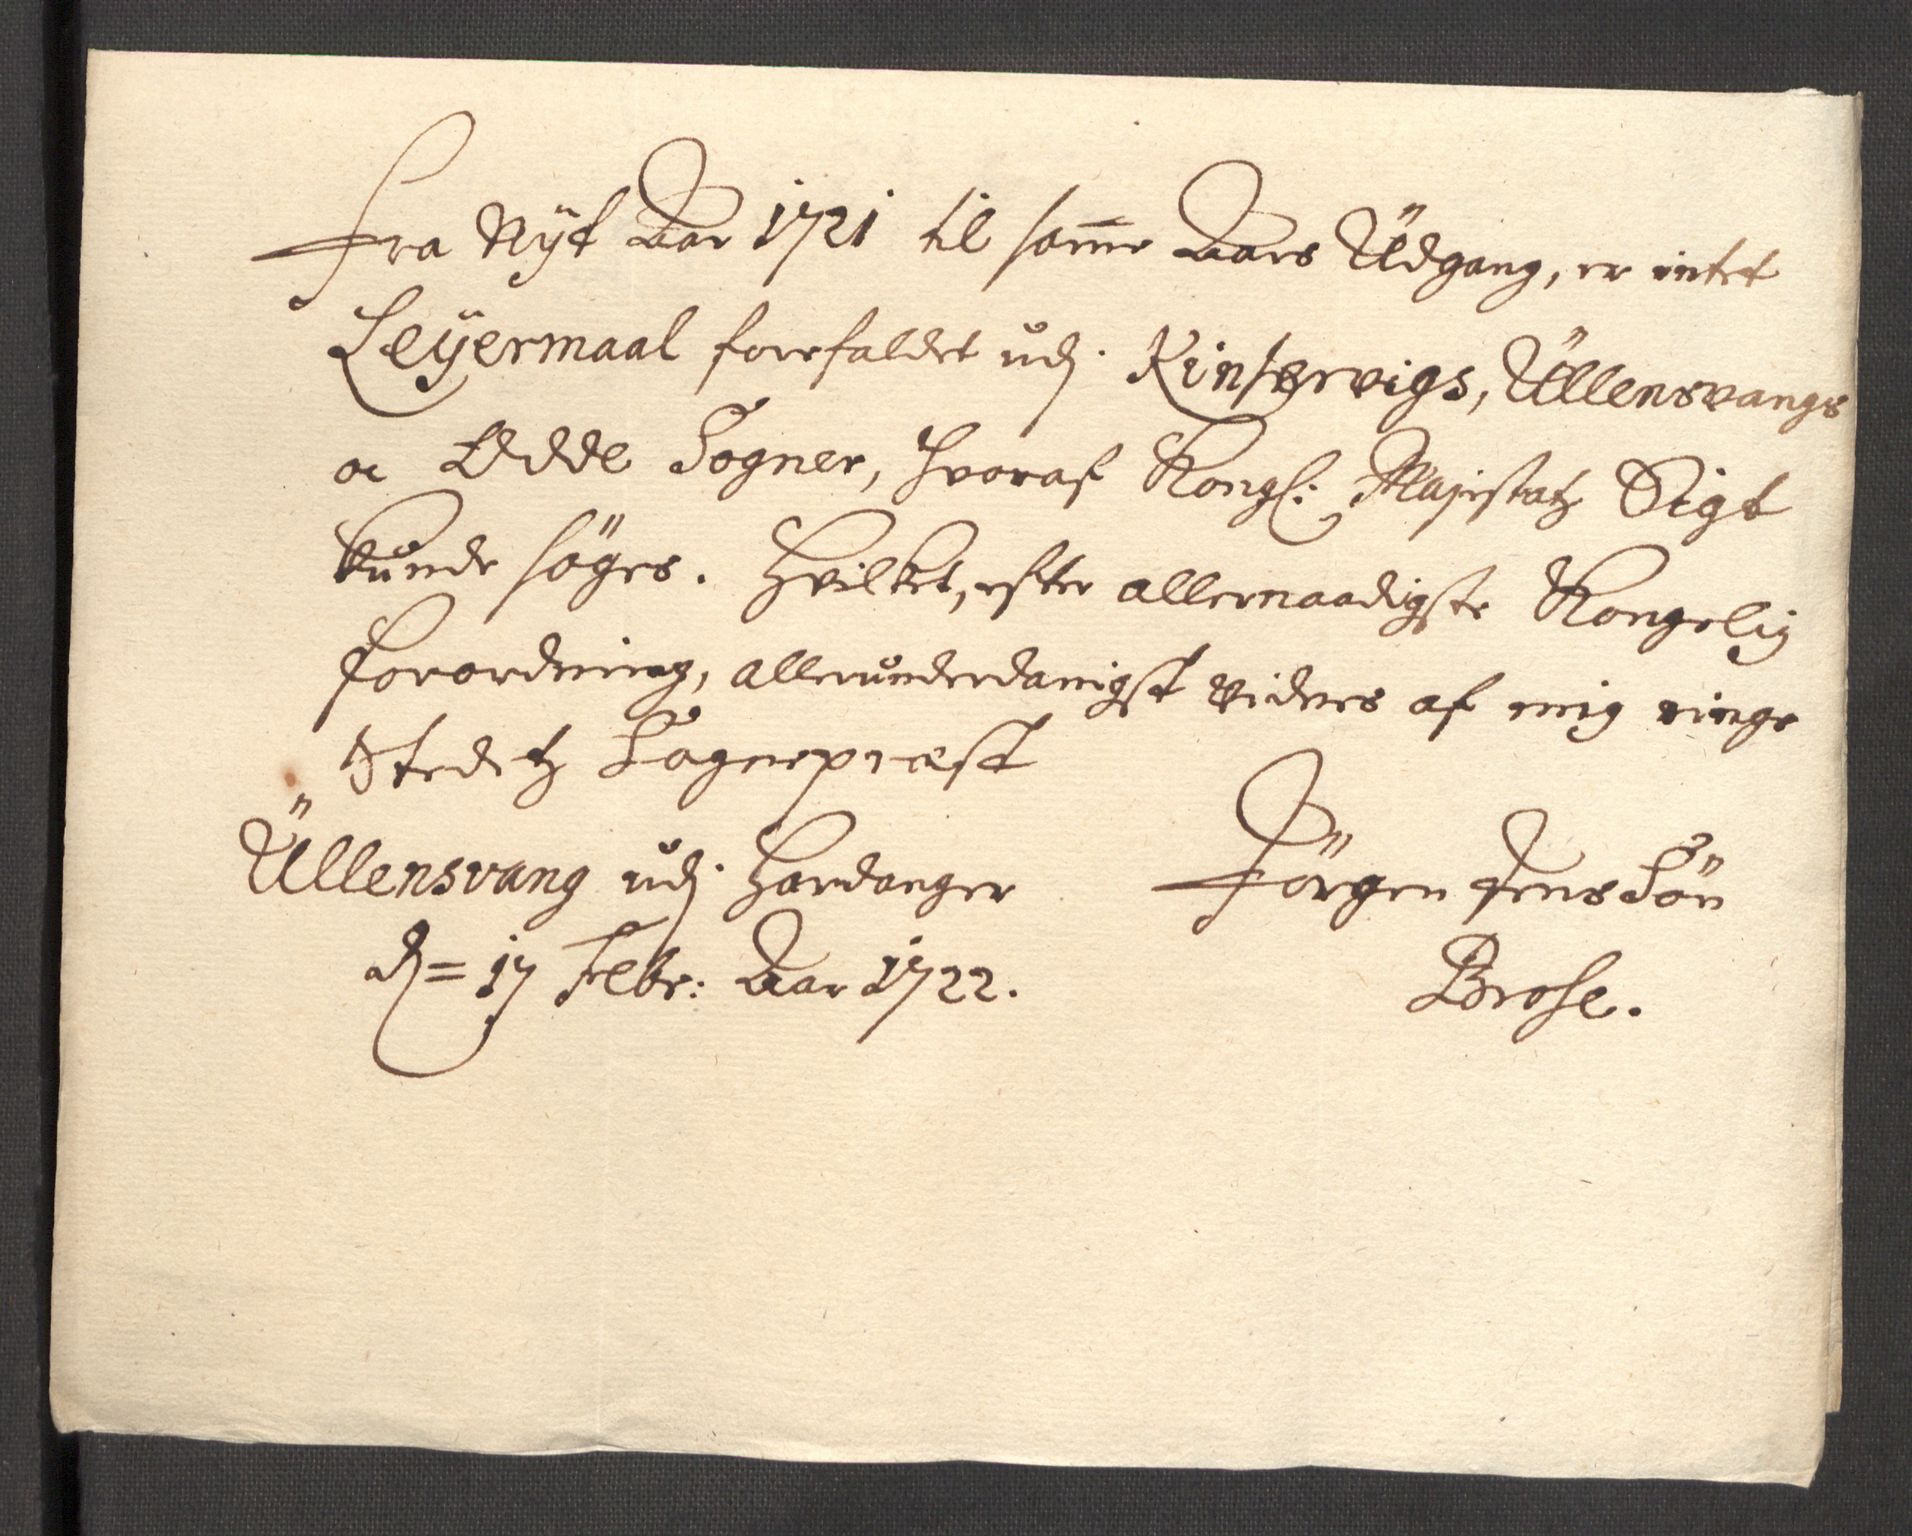 Fra Nÿt Aar 1721 til som̄e Aars Üdgang, er intet
Leÿermaal forefaldet udj Kinservigs, Üllensvangs
oc Odde Sogner, hvoraf Kongl: Majestatz Sigt
kunde söges. Hvilket, efter allernaadigste Kongelig
forordning, allerunderdanigst vidnes af mig ringe
Stedetz Sognepræst
Üllensvang udj Hardanger
d = 17 Febr: Aar 1722.
Jörgen JensSön
Brose.